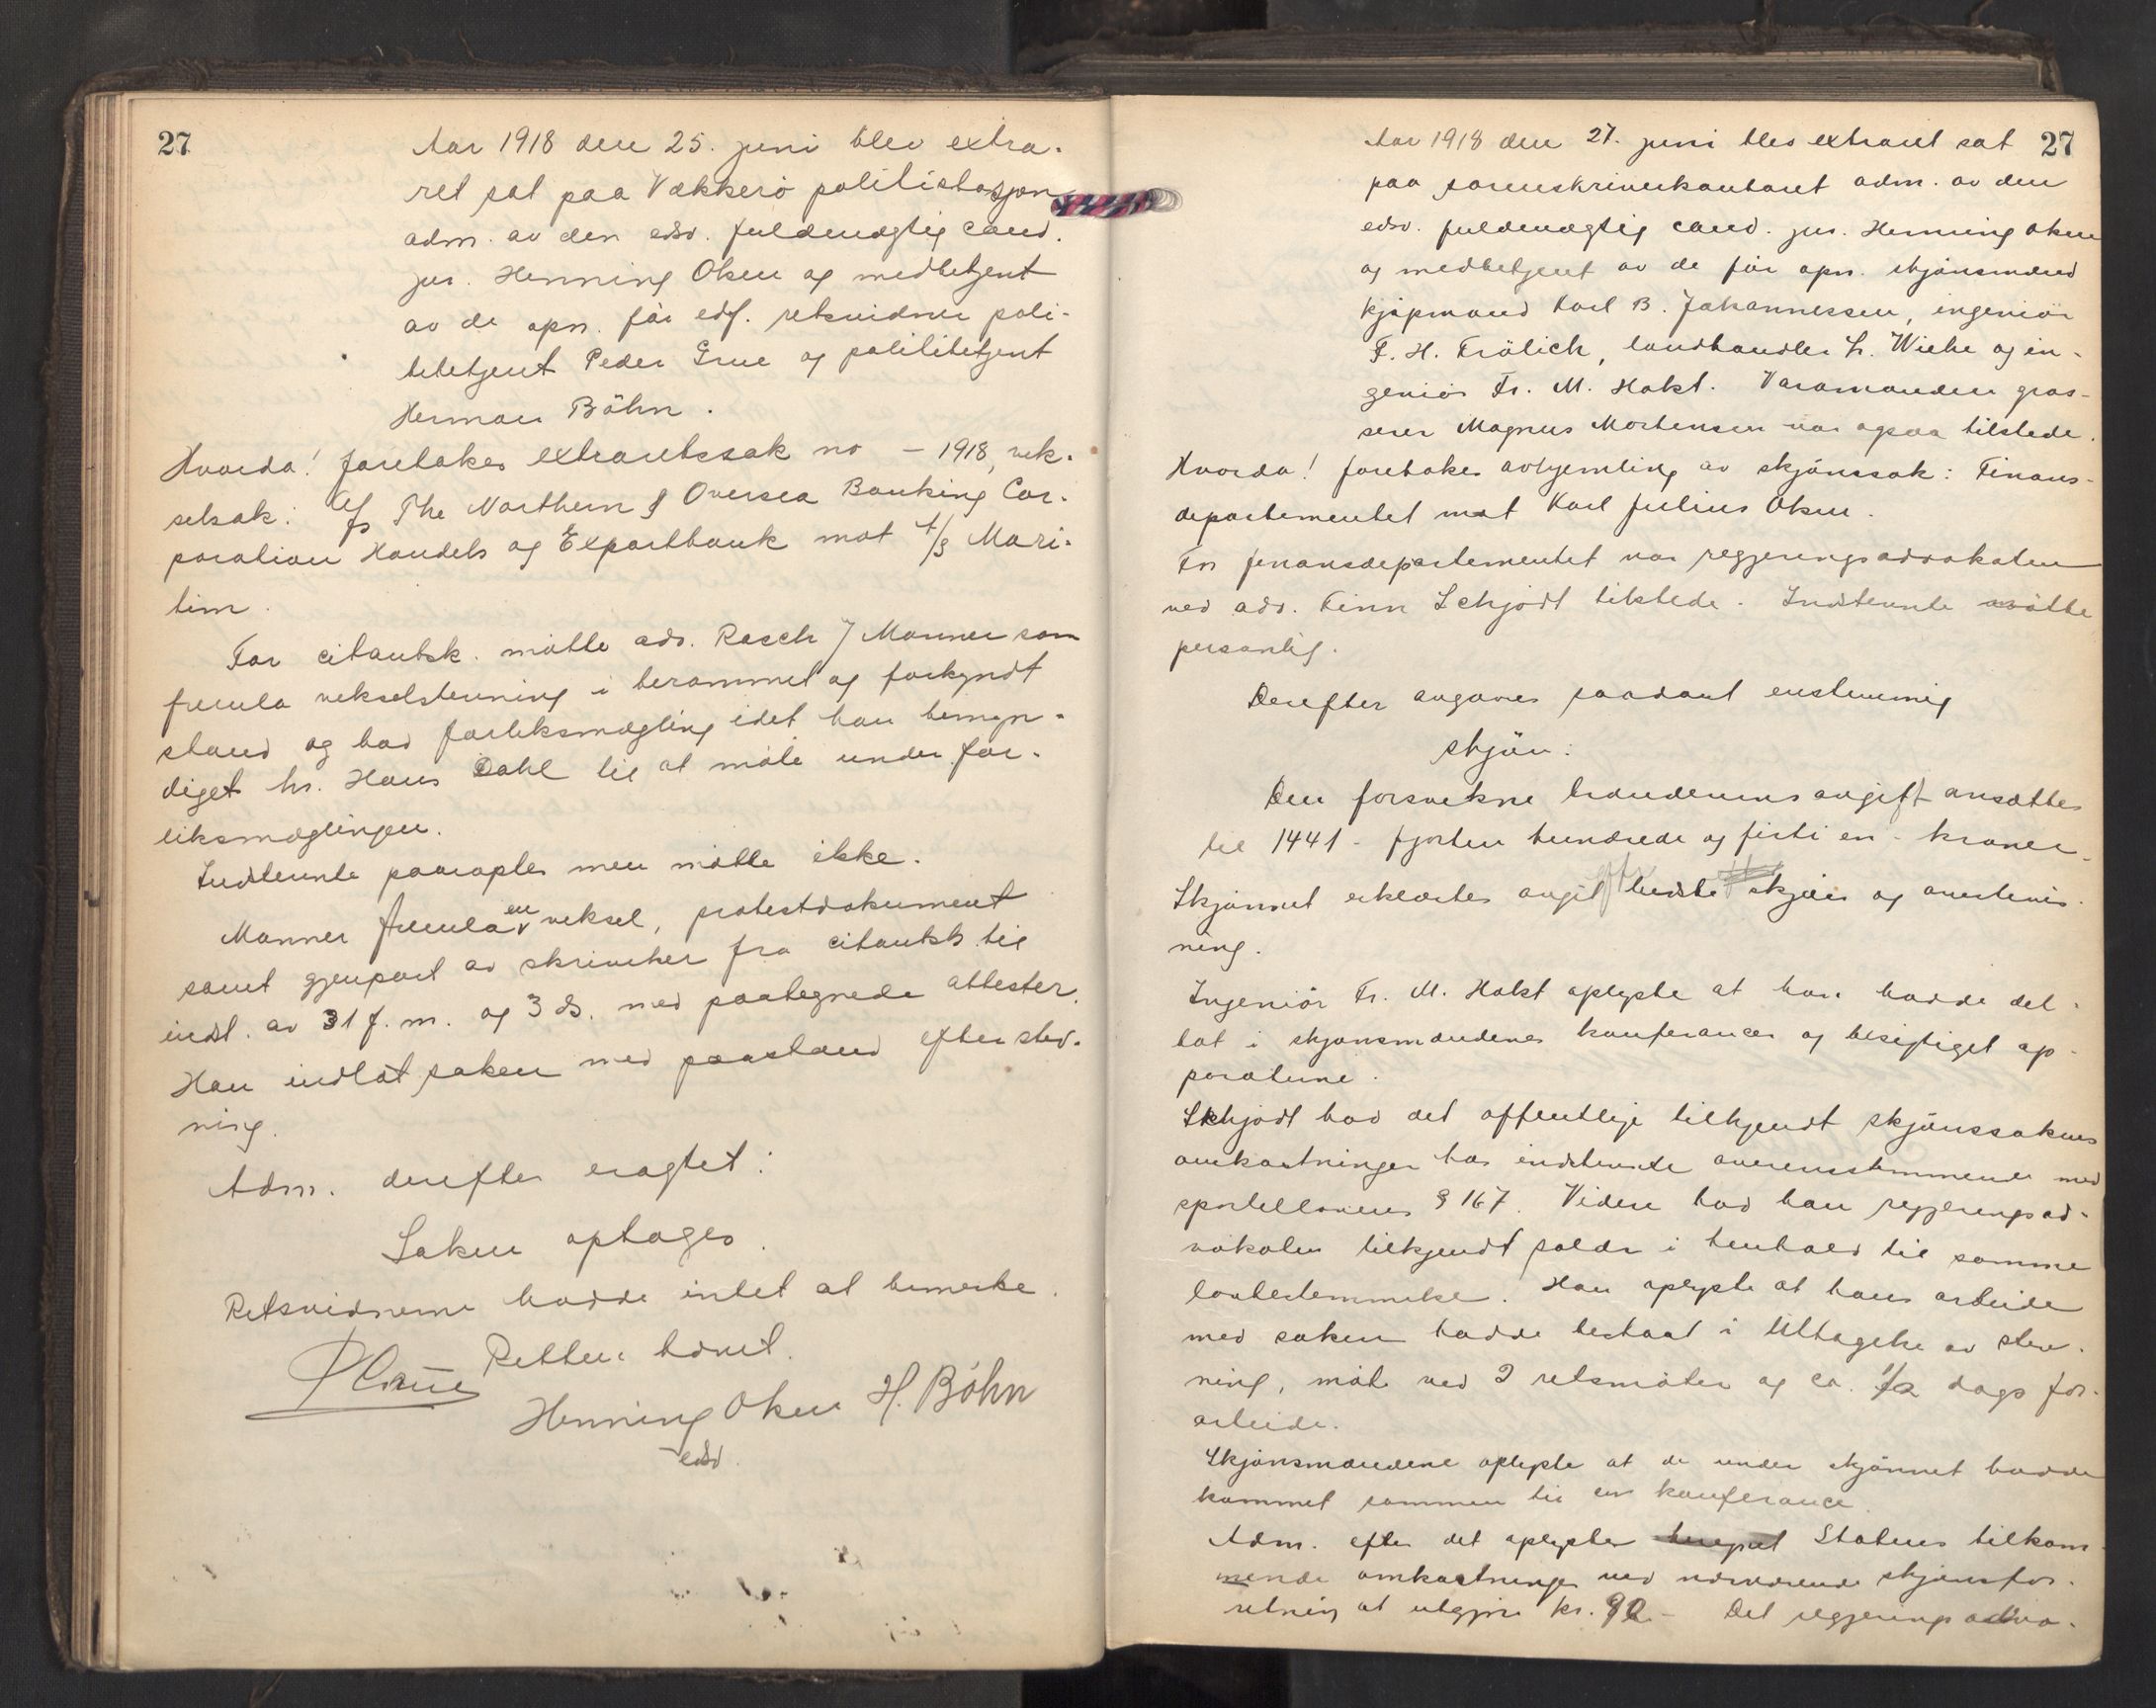 27
Aar 1918 den 25. juni blev extra-
ret sat paa Vækkerø politistasjon
adm. av den edsv. fuldmægtig cand.
jur. Henning Olsen og medbetjent
av de opn. før edf. retsvidner poli-
tibetjent Peder Grue og politibetjent
Herman Bøhn.
Hvorda! foretokes extraretssak no — 1918, vek-
selsak: A/S The Northern & Oversea Banking Cor-
poration Handels og Exportbank mot A/S Mari-
tim.
For citantsk. møtte adv. Rasch / Manner som
fremla vekselstevning i berammet og forkyndt
stand og bad forliksmægling idet han bemyn-
diget hr. Hans Dahl til at møte under for-
liksmæglingen.
Indstevnte paaraaptes men møtte ikke.
Manner fremla en veksel, protestdokument
samt gjenpart av skrivelser fra citantsk. til
indst. av 31 f. m. og 3 ds. med paategnede attester.
Han indlot saken med paastand efter stev-
ning.
Adm. derefter eragtet:
Saken optages.
Retsvidnerne hadde intet at bemerke.
Retten hævet.
PGrue
Henning Olsen H. Bøhn
edsv.
27
Aar 1918 den 27. juni blev extraret sat
paa sorenskriverkontoret adm. av den
edsv. fuldmægtig cand. jur. Henning Olsen
og medbetjent av de før opn. skjønsmænd
kjøpmand Karl B. Johannessen, ingeniør
F. H. Frölich, landhandler L. Wiche og in-
geniør Fr. M. Holst. Varamanden gros-
serer Magnus Mortensen var ogsaa tilstede.
Hvorda! foretokes avhjemling av skjønssak: Finans-
departementet mot Karl Julius Olsen.
For finansdepartementet var regjeringsadvokaten
ved adv. Finn Schjødt tilstede. Indstevnte møtte
personlig.
Derefter avgaves saadant enstemmig
skjøn:
Den forsvekne brændevinsavgift ansættes
til 1441 - fjorten hundrede og firti en - kroner.
Skjønnet erklærtes avgit efter bedste skjøn og overbevis-
ning.
Ingeniør Fr. M. Holst oplyste at han hadde del-
tat i skjønsmændenes konferancer og besigtiget ap-
paraterne.
Schjødt bad det offentlige tilkjendt skjønssakens
omkostninger hos indstevnte overensstemmende med
sportellovens § 167. Videre bad han regjeringsad-
vokaten tilkjendt salær i henhold til samme
lovbestemmelse. Han oplyste at hans arbeide
med saken hadde bestaat i uttagelse av stev-
ning, møte ved 2 retsmøter og ca. 1/2 dags for-
arbeide.
Skjønsmændene oplyste at de under skjønnet hadde
kommet sammen til en konferance.
Adm. efter det oplyste Statens tilkom-
mende omkostninger ved nærværende skjønsfor-
retning at utgjøre kr. 92.- Det regjeringsadvo-